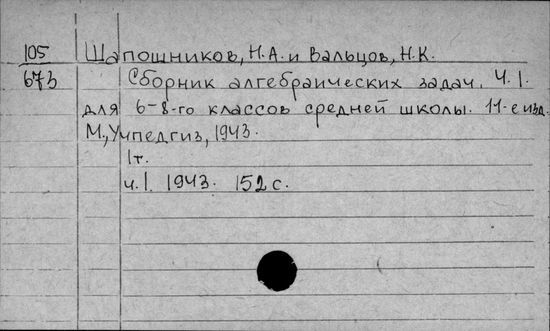 105 Шапошников, Н.А. и Вальцов, Н.К.
673 Сборник алгебраических задач. Ч.I.
для 6-8-го классов средней школы. 11-е изд.
М., Учпедгиз, 1943.
1т.
ч.I. 1943. 152 с.